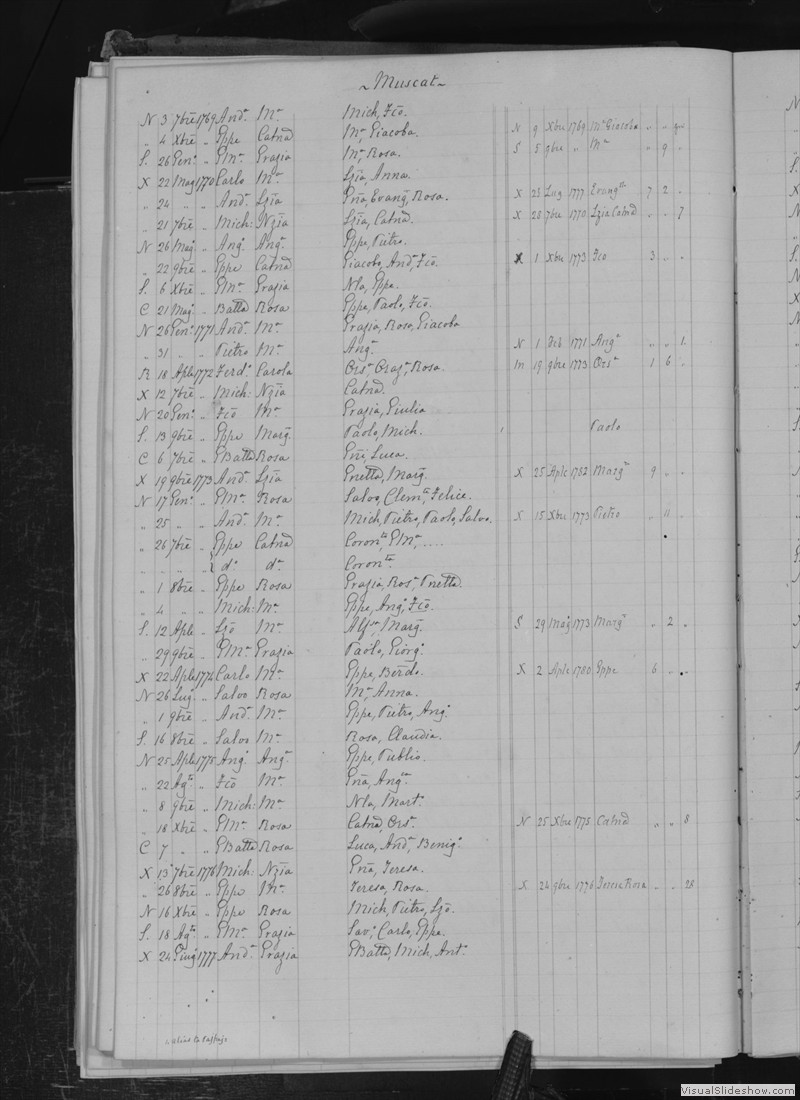 ~ Muscat ~
N 3 7bre 1769 And.a M.a Mich, Fco.
N 9 Xbre 1769 M.a Giacoba " "
" 4 Xbre " Gppe Catnd M.a, Giacoba.
S. 26 Gen.o " GM.a Grazia M.a, Rosa.
S 5 9bre " M.a " 9 "
X 22 Mag 1770 Carlo M.a Lzia, Anna.
" 24 " " And.a Lzia Gna, Evang, Rosa.
X 28 Lug 1777 Evang.ta 7 2 "
" 21 7bre " Mich: Nzia Lzia, Catnd.
X 28 7bre 1770 Lzia Catnd " " 7
N 26 Mag. " Ang.o Ang.a Gppe, Pietro.
" 22 9bre " Gppe Catnd Giacobo, And.a, Fco.
X 1 Xbre 1773 Fco 3 " "
S. 6 Xbre " GM.a Grazia Nla, Gppe.
C 21 Mag.o " Batta Rosa Gppe, Paolo, Fco.
N 26 Gen.o 1771 And.a M.a Grazia, Rosa, Giacoba
" 31 " " Pietro M.a Ang.a
N 1 Feb 1771 Ang.a " " 1.
R 18 Aple 1772 Ferd.o Carola Ors.a, Graz.a, Rosa.
In 19 9bre 1773 Ors.a 1 6 "
X 12 7bre " Mich: Nzia Catnd.
N 20 Gen.o " Fco M.a Grazia, Giulia
S. 13 9bre " Gppe Marg. Paolo, Mich.
Paolo
C 6 7bre " GBatta Rosa Gni, Luca.
X 19 9bre 1773 And.a Lzia Pnetta, Marg.
X 25 Aple 1782 Marg.ta 9 " "
N 17 Gen.o " GM.a Rosa Salvo, Clem.te, Felice.
" 25 " " And.a M.a Mich, Pietro, Paolo, Salvo.
X 15 Xbre 1773 Pietro " 11 "
" 26 7bre " Gppe Catnd Coron.ta, GM.a, ....
" " " " d.o d.a Coron.ta.
" 1 8bre " Gppe Rosa Grazia, Ros.a, Pnetta.
" 4 " " Mich: M.a Gppe, Ang.o, Fco.
S. 12 Aple " Lzo M.a Alf.sa, Marg.
S 29 Mag 1773 Marg.ta " 2 "
" 29 9bre " GM.a Grazia Paolo, Giorg.o
X 22 Aple 1774 Carlo M.a Gppe, Berdo.
X 2 Aple 1780 Gppe 6 " "
N 26 Lug. " Salvo Rosa M.a Anna.
" 1 9bre " And.a M.a Gppe, Pietro, Ang.o
S. 16 8bre " Salvo M.a Rosa, Claudia.
N 25 Aple 1775 Ang. Ang.a Gppe, Publio.
" 22 Ag.to " Fco M.a Gna, Ang.ca
" 8 9bre " Mich: M.a Nla, Mart.o
" 18 Xbre " GM.a Rosa Catnd, Ors.a
N 25 Xbre 1775 Catnd " " 8
C 7 " " GBatta Rosa Luca, And.a, Benig.o
X 13 7bre 1776 Mich: Nzia Gna, Teresa.
" 26 8bre " Gppe M.a Teresa, Rosa.
X 24 9bre 1776 Teresa Rosa " " 28
N 16 Xbre " Gppe Rosa Mich, Pietro, Lzo.
S. 18 Ag.to " GM.a Grazia Sav.o Carlo, Gppe.
X 24 Giug 1777 And.a Grazia GBatta, Mich, Ant.o
VisualSlideshow.com